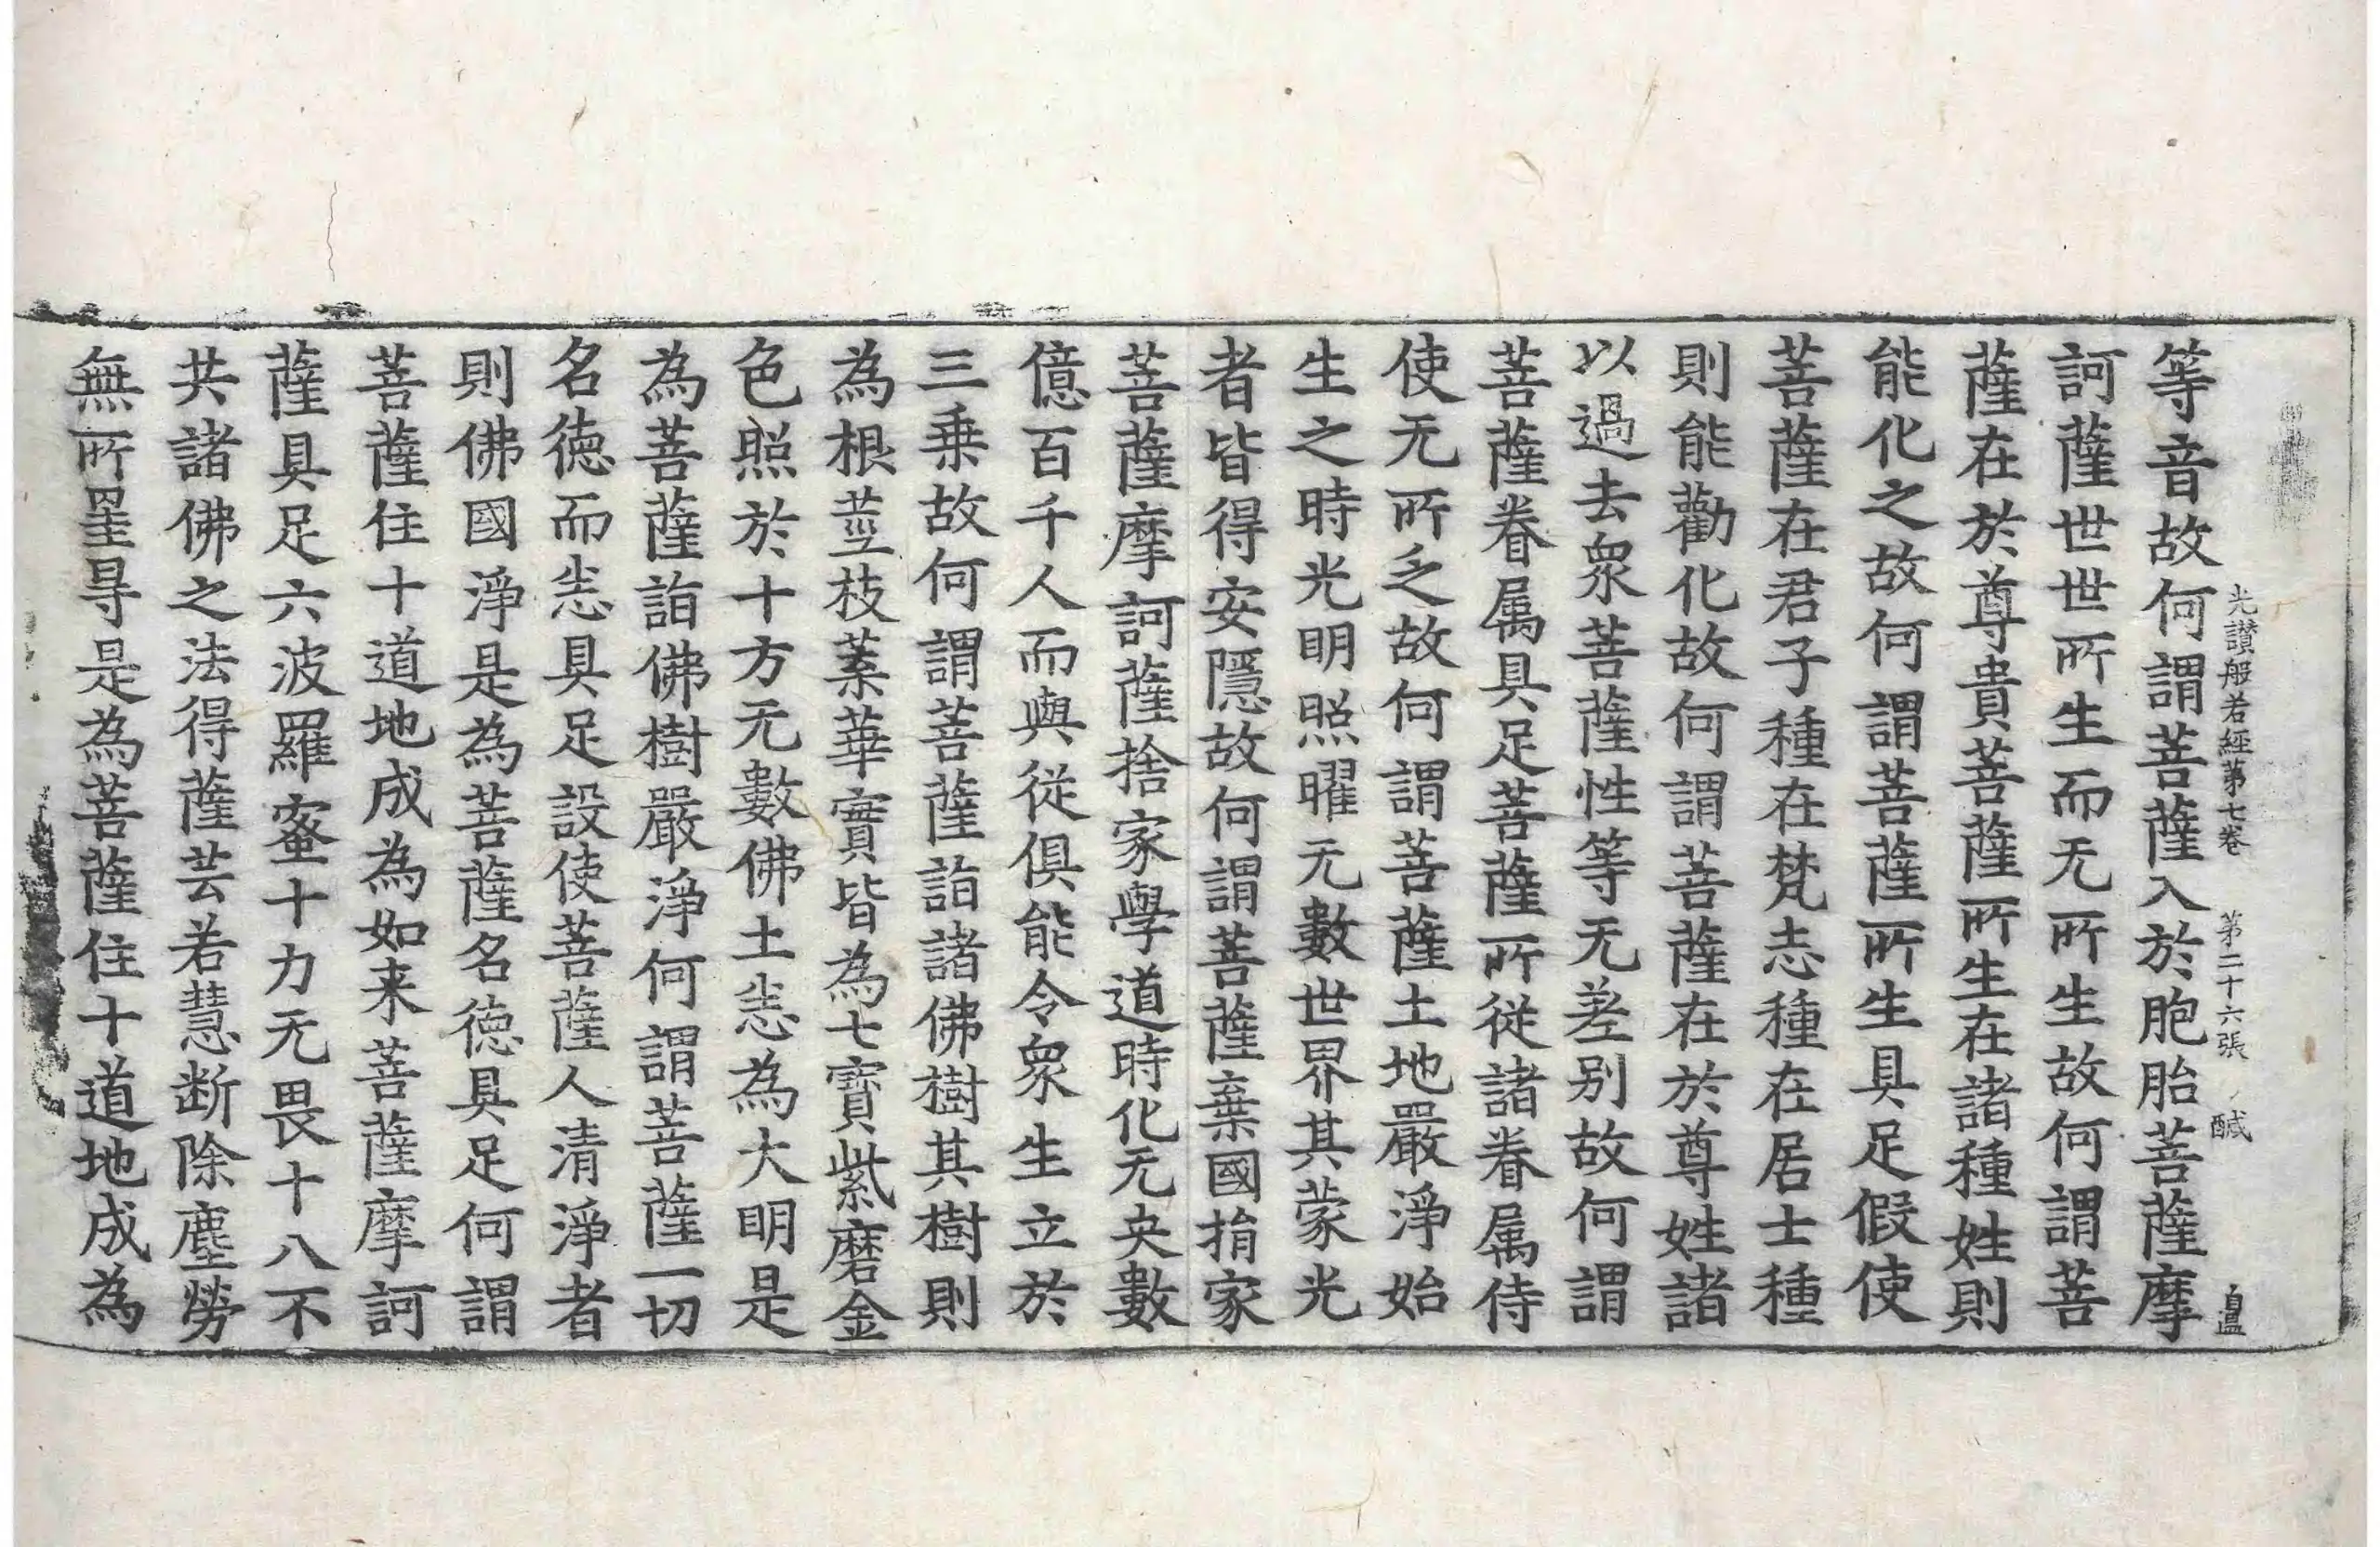 光讃般若經第七卷　第二十六張　醎
等音故何謂菩薩入於胞胎菩薩摩
訶薩世世所生而无所生故何謂菩
薩在於尊貴菩薩所生在諸種姓則
能化之故何謂菩薩所生具足假使
菩薩在君子種在梵志種在居士種
則能勸化故何謂菩薩在於尊姓諸
以過去衆菩薩性等无差别故何謂
菩薩眷属具足菩薩所從諸眷属侍
使无所乏故何謂菩薩土地嚴淨始
生之時光明照曜无數世界其蒙光
者皆得安隱故何謂菩薩棄國捐家
菩薩摩訶薩捨家學道時化无央數
億百千人而與從俱能令衆生立於
三乗故何謂菩薩詣諸佛樹其樹則
為根莖枝葉華實皆為七寶紫磨金
色照於十方无數佛土悉為大明是
為菩薩詣佛樹嚴淨何謂菩薩一切
名徳而悉具足設使菩薩人清淨者
則佛國淨是為菩薩名徳具足何謂
菩薩住十道地成為如来菩薩摩訶
薩具足六波羅蜜十力无畏十八不
共諸佛之法得薩芸若慧断除塵勞
無所罣㝵是為菩薩住十道地成為